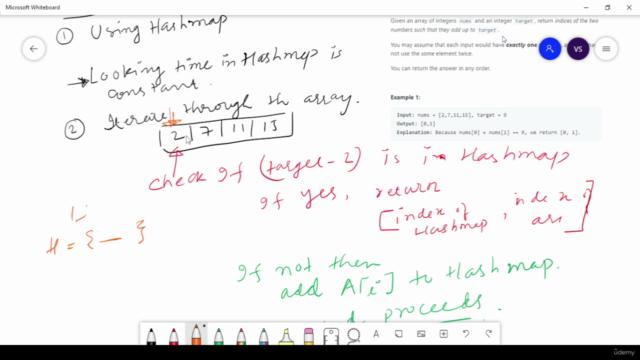 Microsoft Whiteboard
Given an array of integers nums and an integer target, return indices of the two
numbers such that they add up to target.
You may assume that each input would have exactly one
not use the same element twice.
You can return the answer in any order.
Example 1:
Input: nums = [2,7,11,15], target = 9
Output: [0,1]
Explanation: Because nums[0] + nums[1] == 9, we return [0, 1].
VS
① Using Hashmap
→ Looking time in Hashmap is
constant.
② Iterate through th array.
| 2 | 7 | 11 | 15
check If (target-2) is in Hashmap
If yes, return
[index of Hashmap, index of arr]
H = { — }
If not then
add A[i] to Hashmap.
proceeds
A
udemy